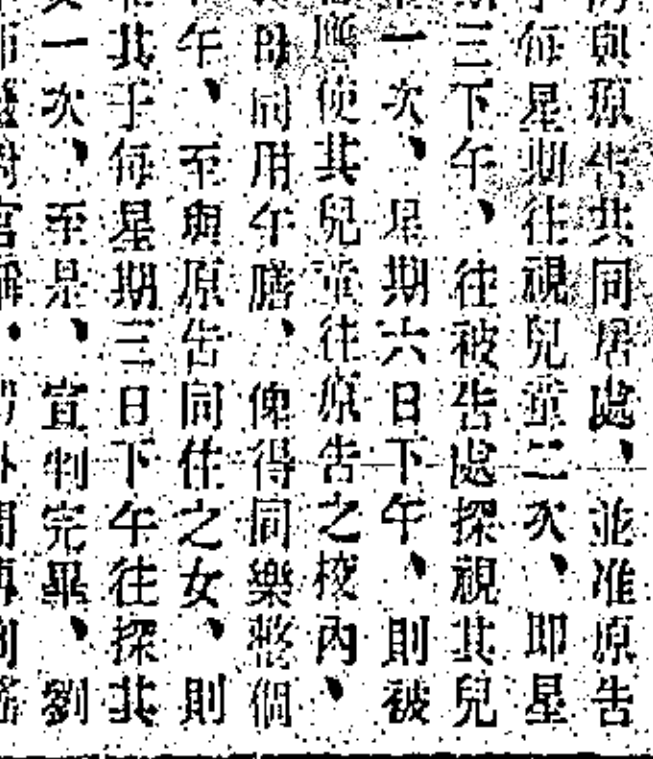 與原告共同居處、並准原告
每星期往視兒童二次、即星
三下午、往被告處探視其兒
一次、星期六日下午、則被
應使其兒童往原告之校內、
母同用午膳、俾得同樂整個
午、至與原告同住之女、則
其子每星期三日下午往探其
一次、至是、宣判完畢、劉